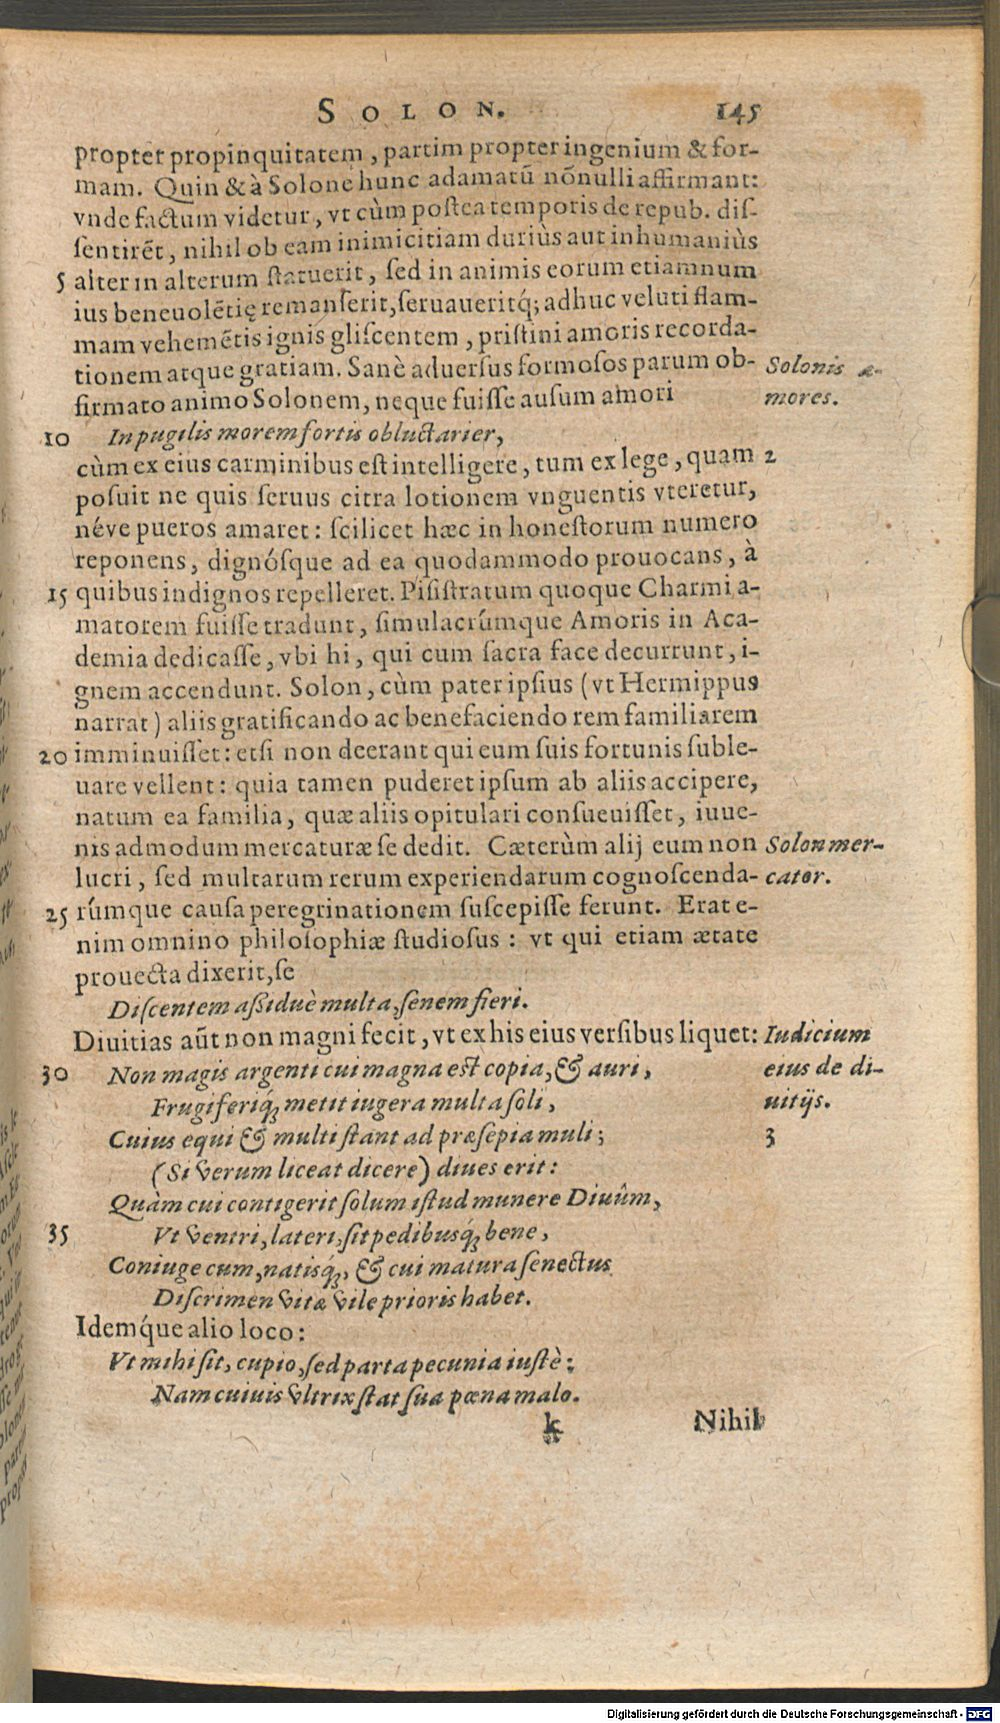 SOLON. 145
propter propinquitatem, partim propter ingenium & for-
mam. Quin & à Solone hunc adamatũ nõnulli affirmant:
vnde factum videtur, vt cùm postea temporis de repub. dis-
sentirẽt, nihil ob eam inimicitiam duriùs aut inhumaniùs
5 alter in alterum statuerit, sed in animis eorum etiamnum
ius beneuolẽtię remanserit, seruaueritq́; adhuc veluti flam-
mam vehemẽtis ignis gliscentem, pristini amoris recorda-
tionem atque gratiam. Sanè aduersus formosos parum ob- Solonis a-
firmato animo Solonem, neque fuisse ausum amori mores.
10 In pugilis morem fortis obluctarier,
cùm ex eius carminibus est intelligere, tum ex lege, quam 2
posuit ne quis seruus citra lotionem vnguentis vteretur,
néve pueros amaret: scilicet hæc in honestorum numero
reponens, dignósque ad ea quodammodo prouocans, à
15 quibus indignos repelleret. Pisistratum quoque Charmi a-
matorem fuisse tradunt, simulacrúmque Amoris in Aca-
demia dedicasse, vbi hi, qui cum sacra face decurrunt, i-
gnem accendunt. Solon, cùm pater ipsius (vt Hermippus
narrat) aliis gratificando ac benefaciendo rem familiarem
20 imminuisset: etsi non deerant qui eum suis fortunis suble-
uare vellent: quia tamen puderet ipsum ab aliis accipere,
natum ea familia, quæ aliis opitulari consueuisset, iuue-
nis admodum mercaturæ se dedit. Cæterùm alij eum non Solon mer-
lucri, sed multarum rerum experiendarum cognoscenda- cator.
25 rúmque causa peregrinationem suscepisse ferunt. Erat e-
nim omnino philosophiæ studiosus: vt qui etiam ætate
prouecta dixerit, se
Discentem assiduè multa, senem fieri.
Diuitias aũt non magni fecit, vt ex his eius versibus liquet: Iudicium
30 Non magis argenti cui magna est copia, & auri, eius de di-
Frugiferiq́; metit iugera multa soli, uitijs.
Cuius equi & multi stant ad præsepia muli; 3
(Si verum liceat dicere) diues erit:
Quàm cui contigerit solum istud munere Diuûm,
35 Vt ventri, lateri, sit pedibusq́; bene,
Coniuge cum, natisq́;, & cui matura senectus
Discrimen vitæ vile prioris habet.
Idemq́ue alio loco:
Vt mihi sit, cupio, sed parta pecunia iustè:
Nam cuiuis vltrix stat sua pœna malo.
k Nihil
Digitalisierung gefördert durch die Deutsche Forschungsgemeinschaft - DFG